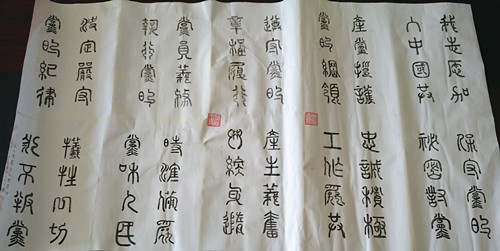 我志愿加
入中國共
產黨擁護
黨的綱領
遵守黨的
章程履行
黨員義務
執行黨的
決定嚴守
黨的紀律
保守黨的
秘密對黨
忠誠積極
工作為共
產主義奮
鬥終身隨
時準備為
黨和人民
犧牲一切
永不叛黨